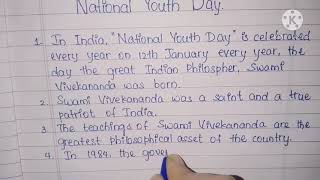 National Youth Day.
1. In India, "National Youth Day" is celebrated
every year on 12th January every year, the
day the great Indian Philospher, Swami
Vivekananda was born.
2. Swami Vivekananda was a saint and a true
patriot of India.
3. The teachings of Swami Vivekananda are the
greatest philosophical asset of the country.
4. In 1984, the gover
KINEMASTER